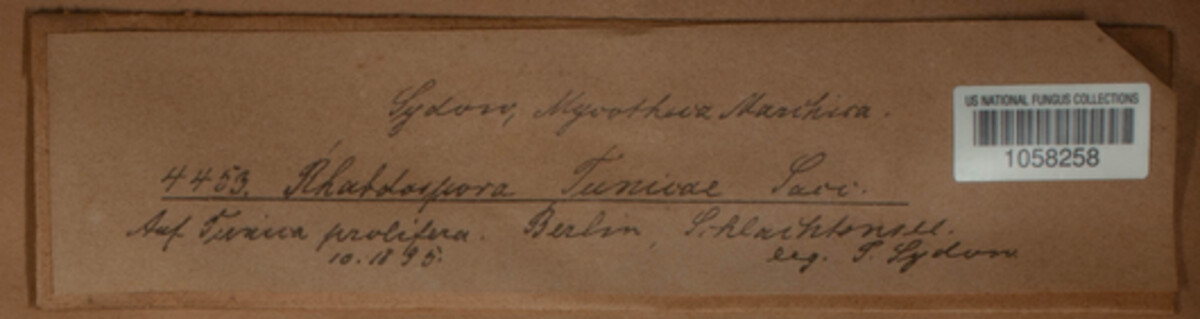 Sydow, Mycotheca Marchica.
US NATIONAL FUNGUS COLLECTIONS
1058258
4453. Rhabdospora Tunicae Sacc.
Auf Tunica prolifera. Berlin, Schlachtensee.
10.1895. leg. P. Sydow